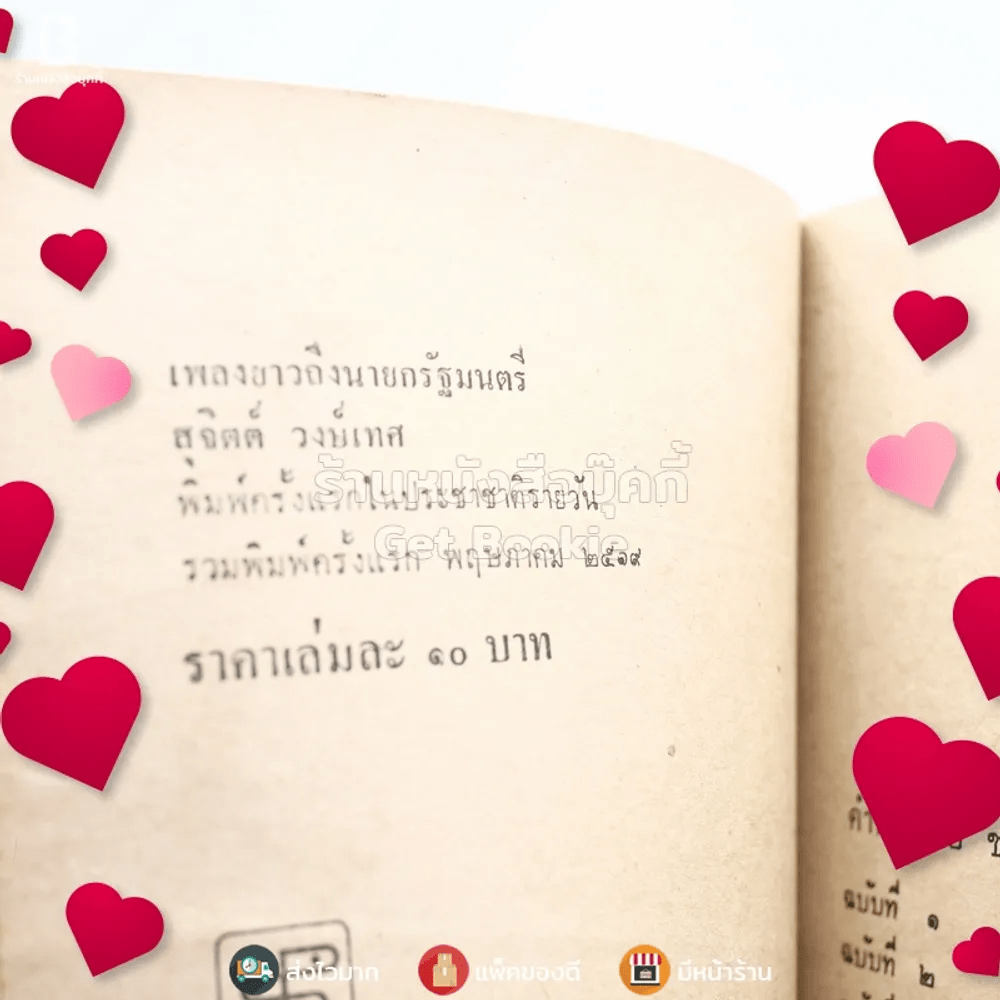 ร้านหนังสือบุ๊คกี้
เพลงยาวถึงนายกรัฐมนตรี
สุจิตต์ วงษ์เทศ
พิมพ์ครั้งแรกในประชาชาติรายวัน
รวมพิมพ์ครั้งแรก พฤษภาคม ๒๕๑๙
ราคาเล่มละ ๑๐ บาท
ร้านหนังสือบุ๊คกี้
Get Bookie
ฉบับที่ ๑
ฉบับที่ ๒
ส่งไวมาก
แพ็คของดี
มีหน้าร้าน